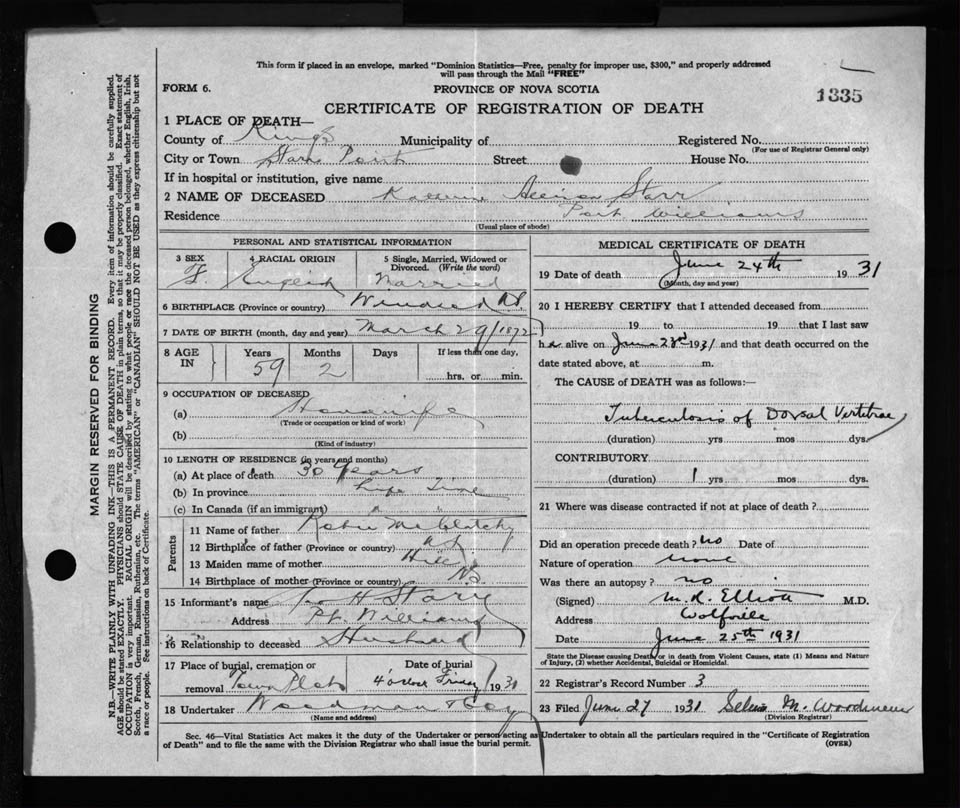 This form if placed in an envelope, marked "Dominion Statistics—Free, penalty for improper use, $300," and properly addressed
will pass through the Mail "FREE"
FORM 6.
PROVINCE OF NOVA SCOTIA
1335
CERTIFICATE OF REGISTRATION OF DEATH
1 PLACE OF DEATH—
County of Kings Municipality of Registered No.
(For use of Registrar General only)
City or Town Starrs Point Street House No.
If in hospital or institution, give name
2 NAME OF DECEASED Starr
Residence Port Williams
(Usual place of abode)
PERSONAL AND STATISTICAL INFORMATION
3 SEX 4 RACIAL ORIGIN 5 Single, Married, Widowed or Divorced. (Write the word)
F. English Married
6 BIRTHPLACE (Province or country) Windsor N.S.
7 DATE OF BIRTH (month, day and year) March 29/1872
8 AGE IN Years Months Days If less than one day,
59 2 hrs. or min.
9 OCCUPATION OF DECEASED
(a) Housewife
(Trade or occupation or kind of work)
(b)
(Kind of industry)
10 LENGTH OF RESIDENCE (in years and months)
(a) At place of death 30 years
(b) In province Life Time
(c) In Canada (if an immigrant) " "
Parents
11 Name of father
12 Birthplace of father (Province or country) N.S.
13 Maiden name of mother Hill
14 Birthplace of mother (Province or country) N.S.
15 Informant's name H Starr
Address Pt. Williams
16 Relationship to deceased Husband
17 Place of burial, cremation or removal Town Plot
Date of burial 4 o'clock Friday 1931
18 Undertaker Woodman & Co
(Name and address)
MEDICAL CERTIFICATE OF DEATH
19 Date of death June 24th 1931
(Month, day and year)
20 I HEREBY CERTIFY that I attended deceased from
19 to 19 that I last saw
her alive on June 23rd 1931 and that death occurred on the
date stated above, at m.
The CAUSE of DEATH was as follows:—
Tuberculosis of Dorsal Vertebrae
(duration) yrs mos dys.
CONTRIBUTORY
(duration) 1 yrs mos dys.
21 Where was disease contracted if not at place of death?
Did an operation precede death? no Date of
Nature of operation none
Was there an autopsy? no
(Signed) M. R. Elliott M.D.
Address Wolfville
Date June 25th 1931
State the Disease causing Death or in death from Violent Causes, state (1) Means and Nature
of Injury, (2) whether Accidental, Suicidal or Homicidal.
22 Registrar's Record Number 3
23 Filed June 27 1931 M. Woodman
(Division Registrar)
Sec. 46—Vital Statistics Act makes it the duty of the Undertaker or person acting as Undertaker to obtain all the particulars required in the "Certificate of Registration
of Death" and to file the same with the Division Registrar who shall issue the burial permit.
(OVER)
MARGIN RESERVED FOR BINDING
N.B.—WRITE PLAINLY WITH UNFADING INK—THIS IS A PERMANENT RECORD. Every item of information should be carefully supplied.
AGE should be stated EXACTLY. PHYSICIANS should STATE CAUSE OF DEATH in plain terms, so that it may be properly classified. Exact statement of
OCCUPATION is very important. RACIAL ORIGIN will be described by stating to what people or race the deceased person belonged, whether English, Irish,
Scotch, French, German, Russian, Ruthenian, etc. The terms "AMERICAN" or "CANADIAN" SHOULD NOT BE USED as they express citizenship but not
a race or people. See instructions on back of Certificate.